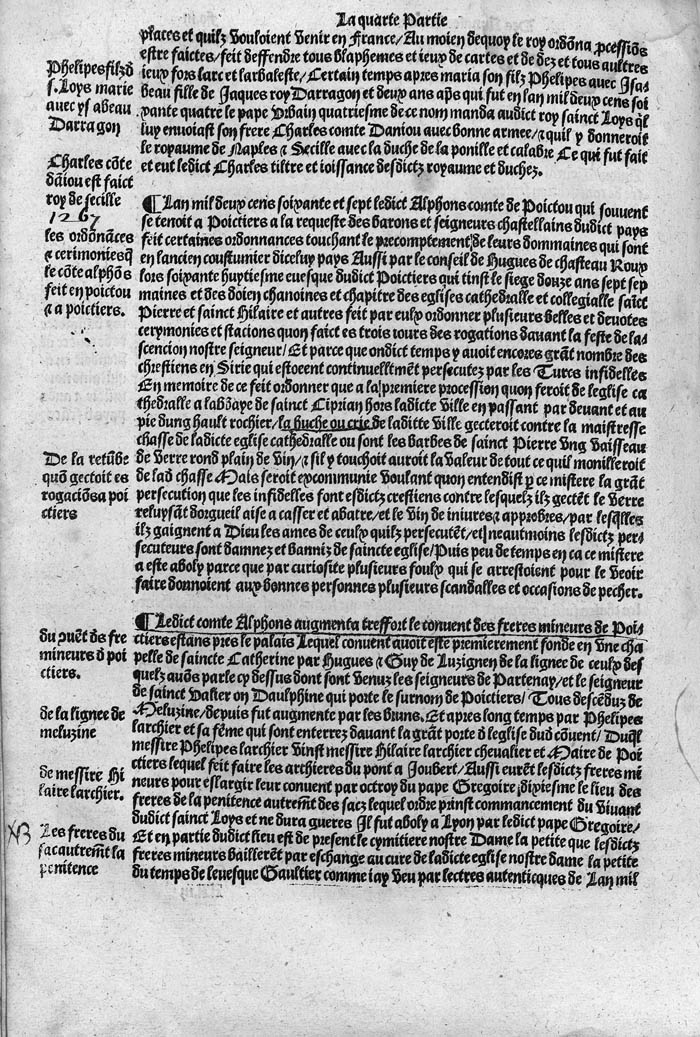 La quarte Partie
places et quilz vouloient venir en France/Au moien dequoy le roy ordōna ꝓcessiōs
estre faictes/feit deffendre tous blaphemes et ieux de cartes et de dez et tous aultres
ieux fors larc et larbaleste/Certain temps apres maria son filz Phelipes auec Isa-
beau fille de Jaques roy Darragon et deux ans ap̄s qui fut en lan mil deux cens soi
xante quatre le pape Vrbain quatriesme de ce nom manda audict roy sainct Loys q̄l
luy enuoiast son frere Charles comte Daniou auec bonne armee/⁊ quil y donneroit
le royaume de Naples ⁊ Secille auec la duche de la ponille et calabre Ce qui fut fait
et eut ledict Charles tiltre et ioissance desdictz royaume et duchez.
Phelipes filz d̄
s. Loys marie
auec ysabeau
Darragon
Charles cōte
dāiou est faict
roy de secille
1267
¶ Lan mil deux cens soixante et sept ledict Alphons comte de Poictou qui souuent
se tenoit a Poictiers a la requeste des barons et seigneurs chastellains dudict pays
feit certaines ordonnances touchant le precomptement de leurs dommaines qui sont
en lancien coustumier diceluy pays Aussi par le conseil de Hugues de chasteau Roux
lors soixante huytiesme euesque dudict Poictiers qui tinst le siege douze ans sept sep
maines et des doien chanoines et chapitre des eglises cathedralle et collegialle saīct
Pierre et sainct Hilaire et autres feit par eulx ordonner plusieurs belles et deuotes
cerymonies et stacions quon faict es trois iours des rogations dauant la feste de las-
scencion nostre seigneur/Et parce que ondict temps y auoit encores grāt nombre des
chrestiens en Sirie qui estoient continuellemēt persecutez par les Turcs infidelles
En memoire de ce feit ordonner que a la premiere procession quon feroit de leglise ca
thedralle a labbaye de sainct Ciprian hors ladicte ville en passant par deuant et au
pie dung hault rochier/la buche ou crie de laditte ville gecteroit contre la maistresse
chasse de ladicte eglise cathedralle ou sont les barbes de sainct Pierre vng vaisseau
de verre rond plain de vin/⁊ sil y touchoit auroit la valeur de tout ce quil monilleroit
de lad̄ chasse Mais seroit excommunie voulant quon entendist ꝑ ce mistere la grāt
persecution que les infidelles font esdictz crestiens contre lesquelz ilz gectēt le verre
reluysāt dorgueil aise a casser et abatre/et le vin de iniures ⁊ approbres/par lesq̄lles
ilz gaignent a Dieu les ames de ceulx quilz persecutēt/et neautmoins lesdictz per-
secuteurs sont damnez et banniz de saincte eglise/Puis peu de temps en ca ce mistere
a este aboly parce que par curiosite plusieurs foulx qui se arrestoient pour le veoir
faire donnoient aux bonnes personnes plusieurs scandalles et occasions de pecher.
les ordōnāces
⁊ cerimonies q̄
le cōte alphōs
feit en poictou
⁊ a poictiers.
De la retūbe
quō gectoit es
rogaciōs a poi
ctiers
¶ Ledict comte Alphons augmenta tresfort le conuent des freres mineurs de Poi-
ctiers estans pres le palais Lequel conuent auoit este premierement fonde en vne cha
pelle de saincte Catherine par Hugues ⁊ Guy de Luzignen de la lignee de ceulx des
quelz auōs parle cy dessus dont sont venuz les seigneurs de Partenay/et le seigneur
de sainct Valier on Daulphine qui porte le surnom de Poictiers/Tous descēduz de
Meluzine/depuis fut augmente par les bruns. Et apres long temps par Phelipes
larchier et sa fēme qui sont enterrez dauant la grāt porte d̄ leglise dud̄ cōuent/Duq̄l
messire Phelipes larchier vinst messire Hilaire larchier cheualier et Maire de Poi
ctiers lequel feit faire les archieres du pont a Joubert/Aussi eurēt lesdictz freres mi
neurs pour eslargir leur conuent par octroy du pape Gregoire dixiesme le lieu des
freres de la penitence autremēt des sacz lequel ordre prinst commancement du viuant
dudict sainct Loys et ne dura gueres Il fut aboly a Lyon par ledict pape Gregoire/
Et en partie dudict lieu est de present le cymitiere nostre Dame la petite que lesdictz
freres mineurs baillerēt par eschange au cure de ladicte eglise nostre dame la petite
du temps de leuesque Gaultier comme iay veu par lectres autenticques de Lan mil
du ↄuēt d̄s fre
mineurs d̄ poi
ctiers.
de la lignee de
meluzine
de messire Hi
laire larchier.
Les freres du
sac autremēt la
penitence